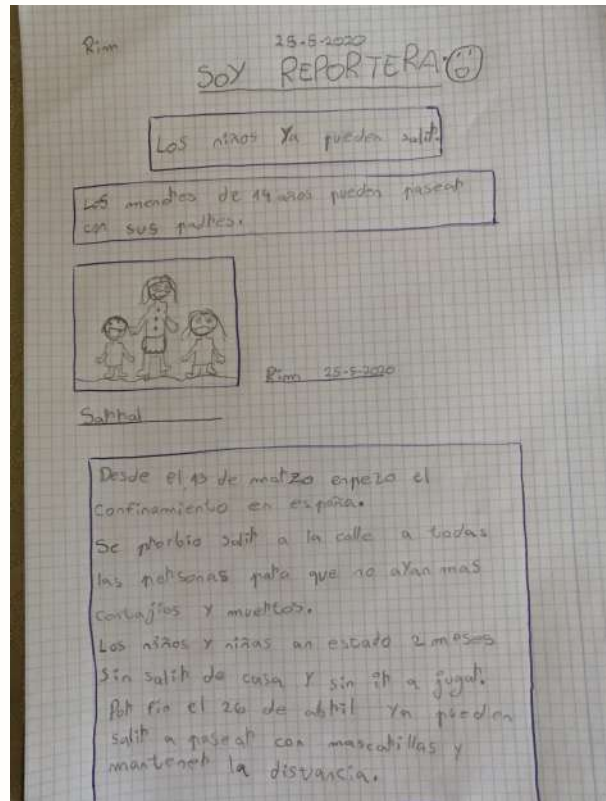 Rim
25-5-2020
SOY REPORTERA
Los niños Ya pueden salir.
Los menores de 14 años pueden pasear
con sus padres.
Rim 25-5-2020
Sarhal
Desde el 13 de marzo enpezo el
confinamiento en españa.
Se prorbio salir a la calle a todas
las personas para que no ayan mas
contajios y muertos.
Los niños y niñas an estado 2 meses
sin salir de casa y sin ir a jugar.
Por fin el 26 de abril ya pueden
salir a pasear con mascarillas y
mantener la distancia.